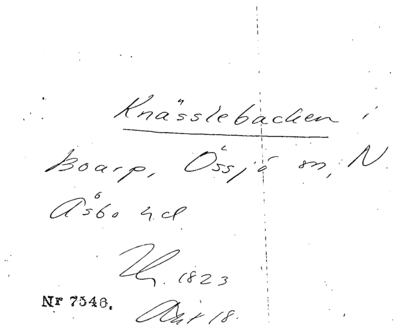 Knässlebacken i
Boarp, Össjö sn, N
Åsbo hd
1823
Nr 7546. 18.